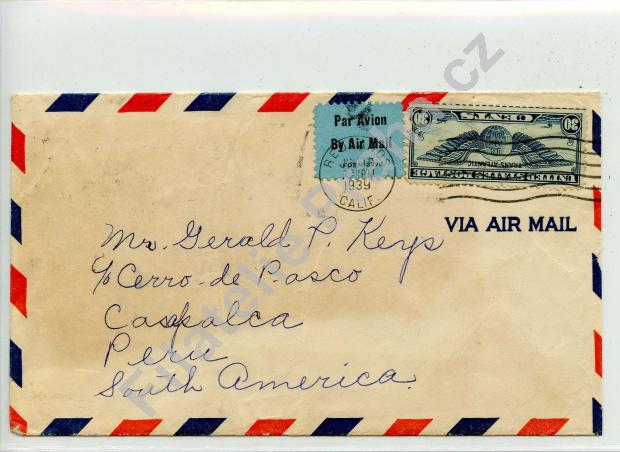 Par Avion
By Air Mail
1939
CALIF.
UNITED STATES POSTAGE
TRANS-ATLANTIC
30 CENTS 30
VIA AIR MAIL
Mr. Gerald P. Keys
c/o Cerro de Pasco
Casapalca
Peru
South America.
Filatelie Praha.cz